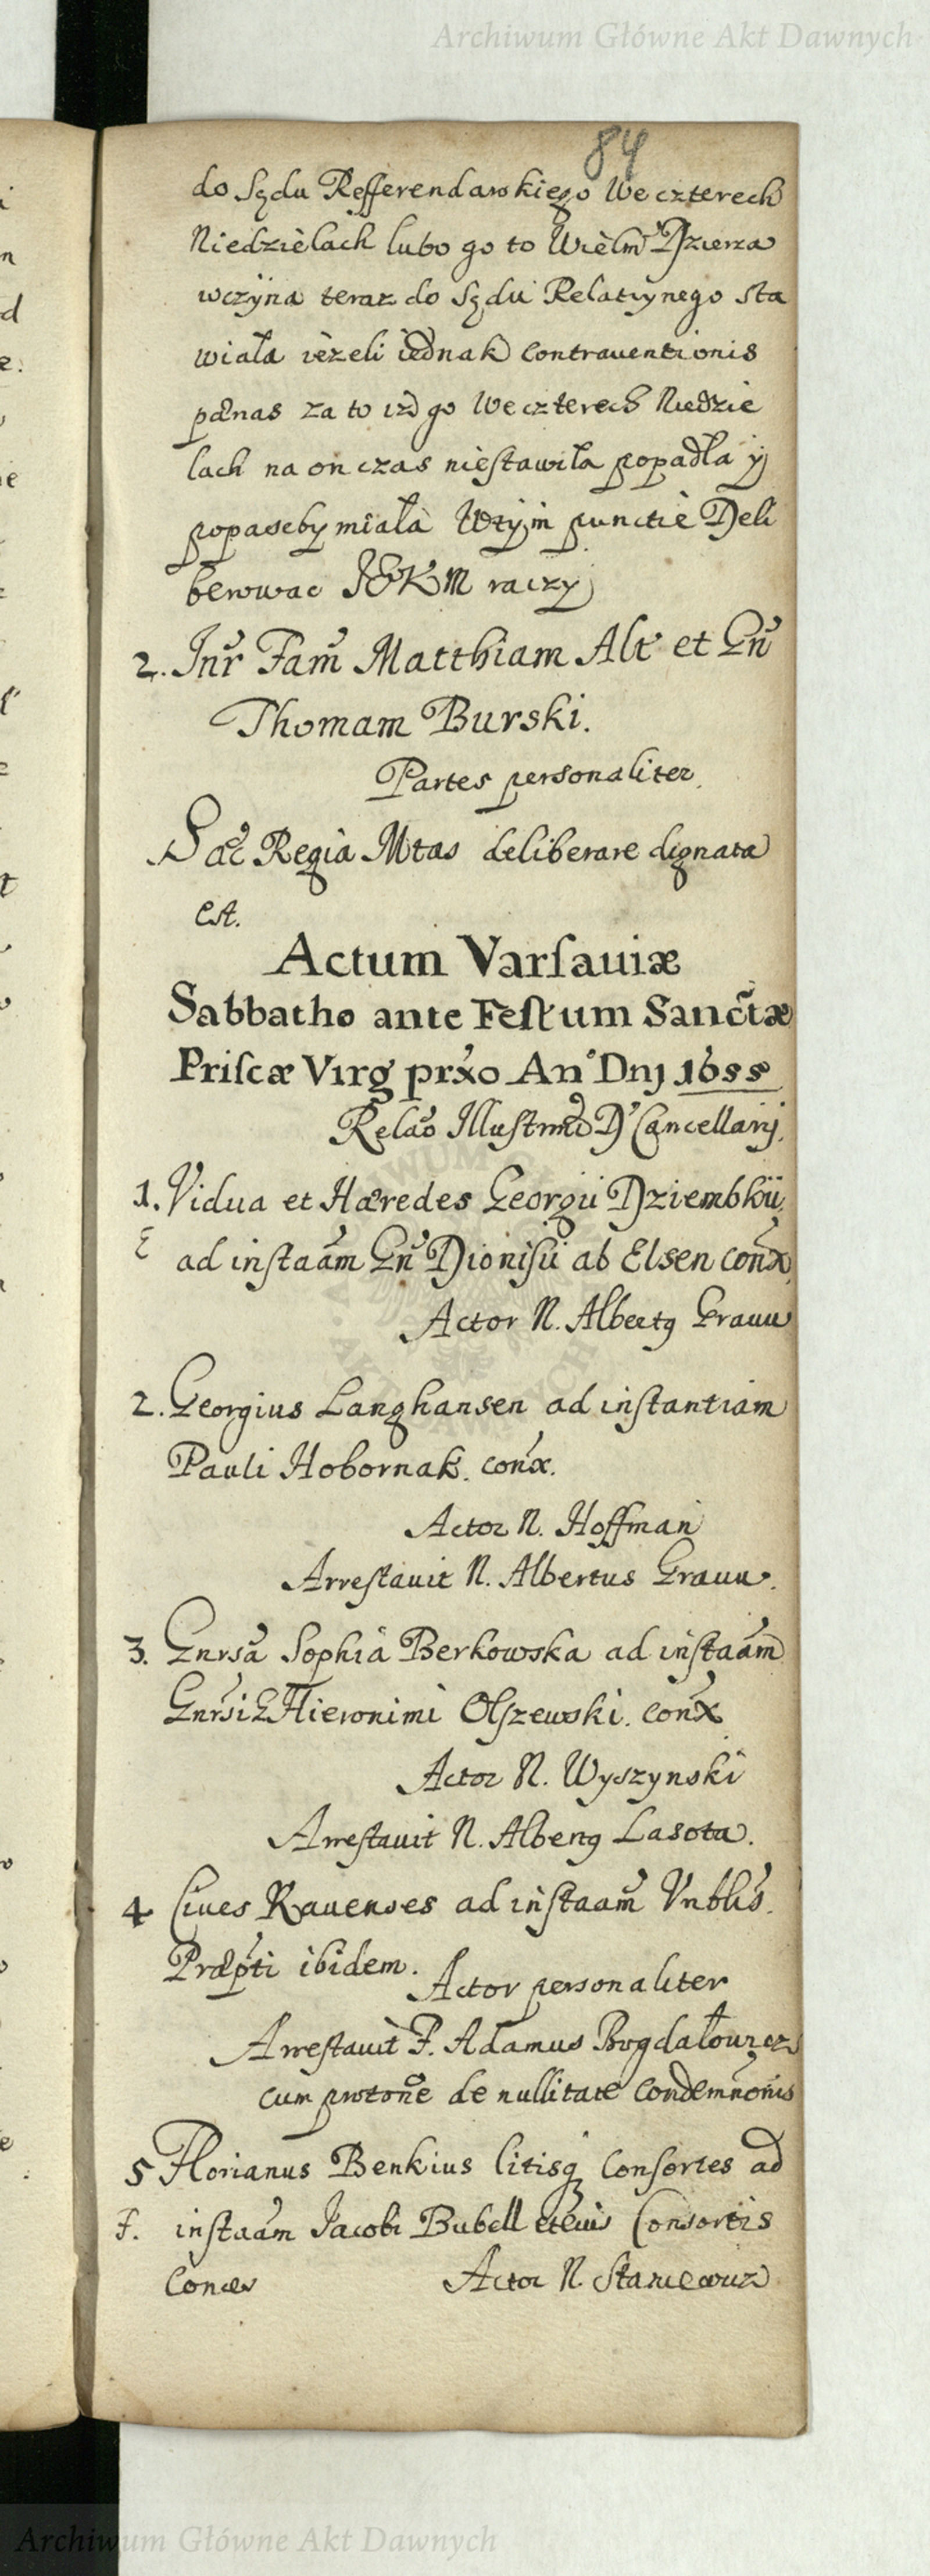 Archiwum Główne Akt Dawnych
84
do Sędu Refferendarskiego We czterech
Niedzièlach lubo go to Wièlm Dzierza
wczÿna teraz do Sędu Relacyinego sta
wiała ièzeli iednak contrauentionis
pænas za to iz go We czterech Niedzie
lach na on czas niestawiła popadła ÿ
popaseby miała Wtÿm punctiè Deli
berowac JEKM raczy
2. Inr Fam Matthiam Alt et Gn
Thomam Burski.
Partes personaliter.
Sac Regia Mtas deliberare dignata
est.
Actum Varſauiæ
Sabbatho ante Feſtum Sanctæ
Priſcæ Virg prxo An° Dnj 1655
Relao Illustrmi D Cancellarij.
1. Vidua et Hæredes Georgii Dziembkii
ad instaam Gn Dionisii ab Elsen conx
Actor N. Albertq Grauu
2. Georgius Langhansen ad instantiam
Pauli Hobornak. conx.
Actor N. Hoffman
Arrestauit N. Albertus Grauu.
3. Gnrsa Sophia Berkowska ad instaam
Gnrsi Hieronimi Olszewski. conx
Actor N. Wyszynski
Arrestauit N. Albertq Lasota.
4 Ciues Rauenses ad instaam Vnblis.
Præpti ibidem.
Actor personaliter
Arrestauit F. Adamus Bogdałowicz
cum protone de nullitate condemnonis
5 Florianus Benkius litisq Consortes ad
F. instaam Jacobi Bubell eteius Consortis
Conces
Actor N. Staniewicz
Archiwum Główne Akt Dawnych